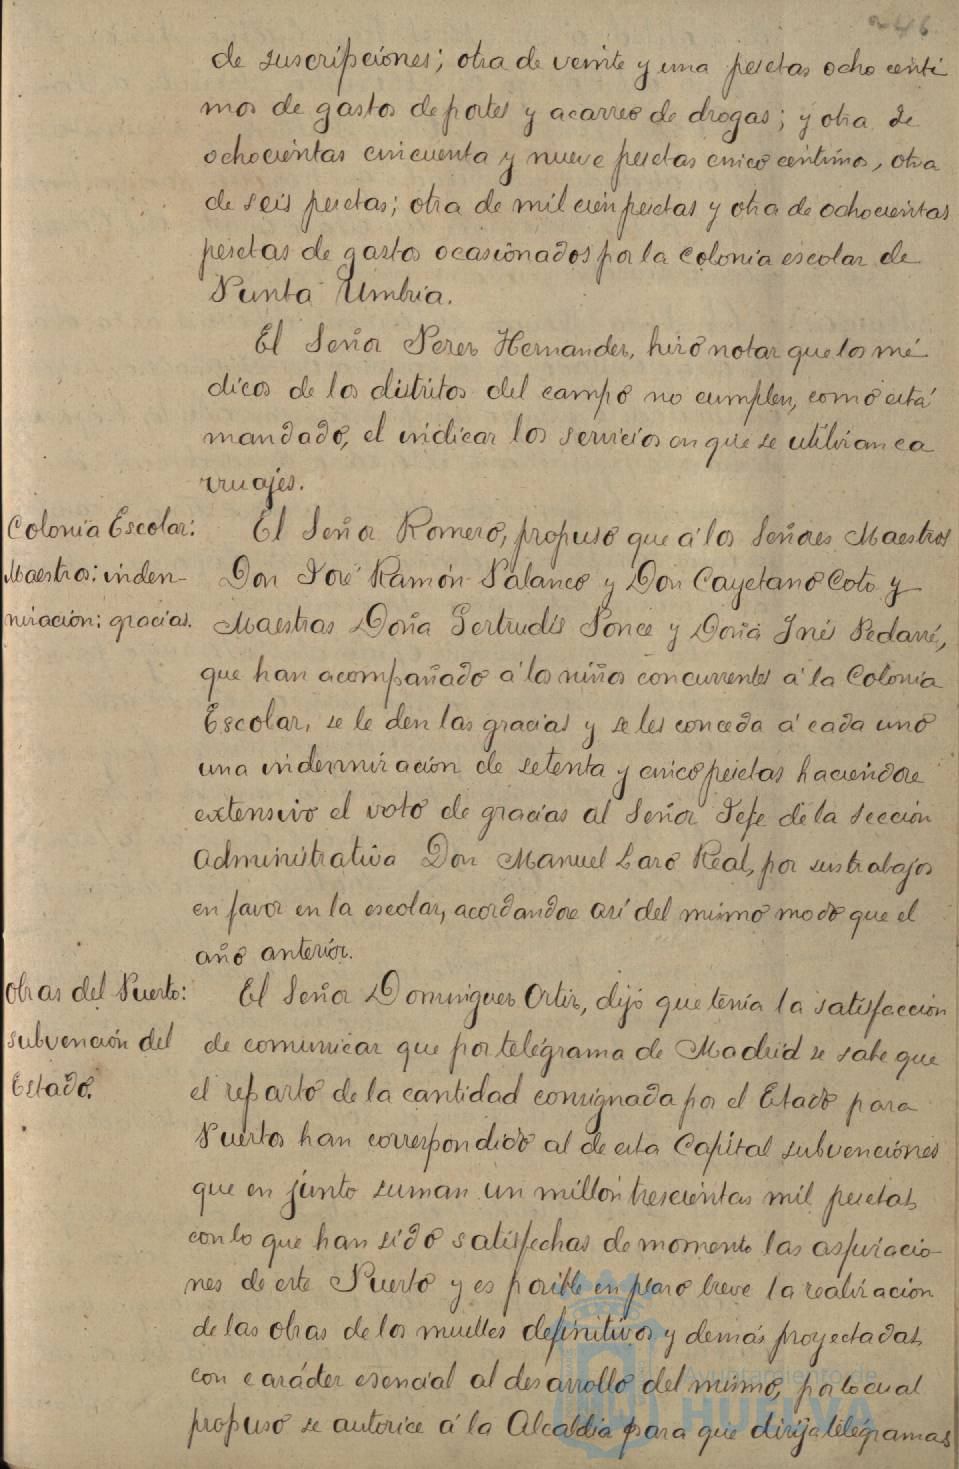 246
de suscripciones; otra de veinte y una pesetas ocho centi
mos de gastos de portes y acarreo de drogas; y otra de
ochocientas cincuenta y nueve pesetas cinco centimos, otra
de seis pesetas; otra de mil cien pesetas y otra de ochocientas
pesetas de gastos ocasionados por la colonia escolar de
Punta Umbria.
El Señor Perez Hernandez, hizo notar que los mé
dicos de los distritos del campo no cumplen, como está
mandado, el indicar los servicios en que se utilizan ca
rruajes.
Colonia Escolar:
Maestros: indem-
nización: gracias.
El Señor Romero, propuso que á los Señores Maestros
Don José Ramón Palanco y Don Cayetano Coto y
Maestras Doña Gertrudis Ponce y Doña Inés Pedarré,
que han acompañado á los niños concurrentes á la Colonia
Escolar, se le den las gracias y se les conceda á cada uno
una indemnización de setenta y cinco pesetas haciendose
extensivo el voto de gracias al Señor Jefe de la Sección
Administrativa Don Manuel Lazo Real, por sus trabajos
en favor en la escolar, acordandose así del mismo modo que el
año anterior.
Obras del Puerto:
subvención del
Estado.
El Señor Dominguez Ortiz, dijo que tenía la satisfacción
de comunicar que por telégrama de Madrid se sabe que
el reparto de la cantidad consignada por el Etado para
Puertos han correspondido al de esta Capital subvenciones
que en junto suman un millón trescientas mil pesetas,
con lo que han sido satisfechas de momento las aspiracio-
nes de este Puerto y es posible en plazo breve la realización
de las obras de los muelles definitivos y demás proyectadas,
con carácter esencial al desarrollo del mismo, por lo cual
propuso se autorice á la Alcaldia para que dirija telégramas
Ayuntamiento de
HUELVA